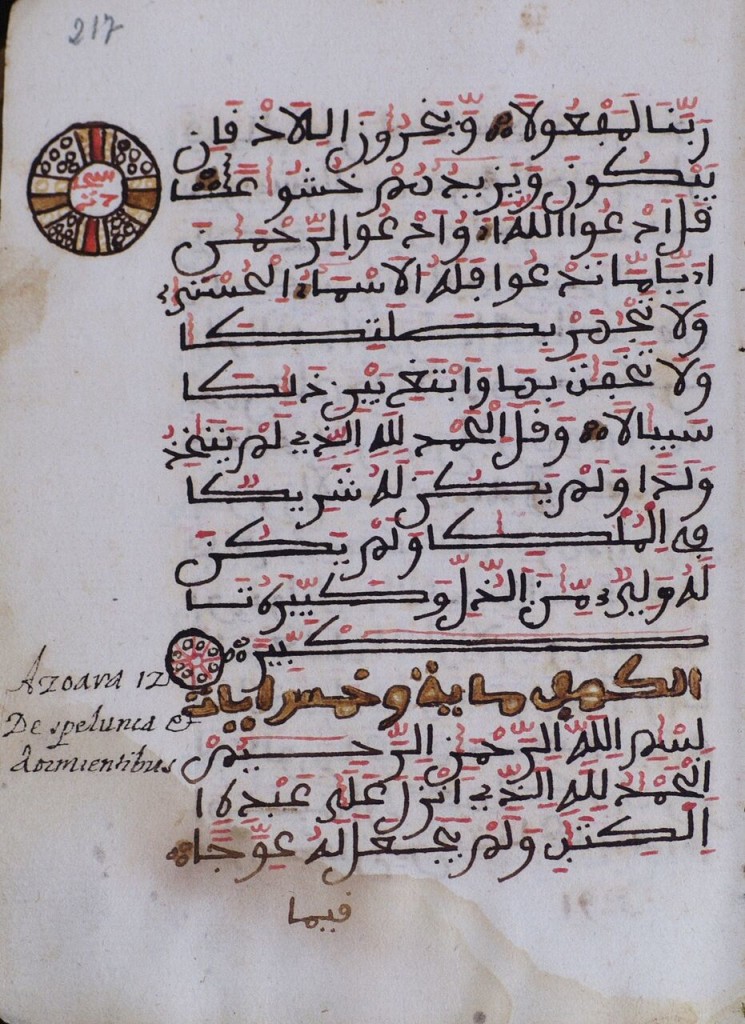 217
ربنا لمفعولا ويخرون للاذقان
يبكون ويزيدهم خشوعا
سجدة
قل ادعوا الله او ادعوا الرحمن
ايا ما تدعوا فله الاسماء الحسنى
ولا تجهر بصلتك
ولا تخفت بها وابتغ بين ذلك
سبيلا وقل الحمد لله الذي لم يتخذ
ولدا ولم يكن له شريك
في الملك ولم يكن
له ولي من الذل وكبره تـ
كبيرا
الكهف ماية وخمس ايات
بسم الله الرحمن الرحيم
الحمد لله الذي انزل على عبده ا
الكتب ولم يجعل له عوجا
فيما
Azoara
De spelunca et
dormientibus